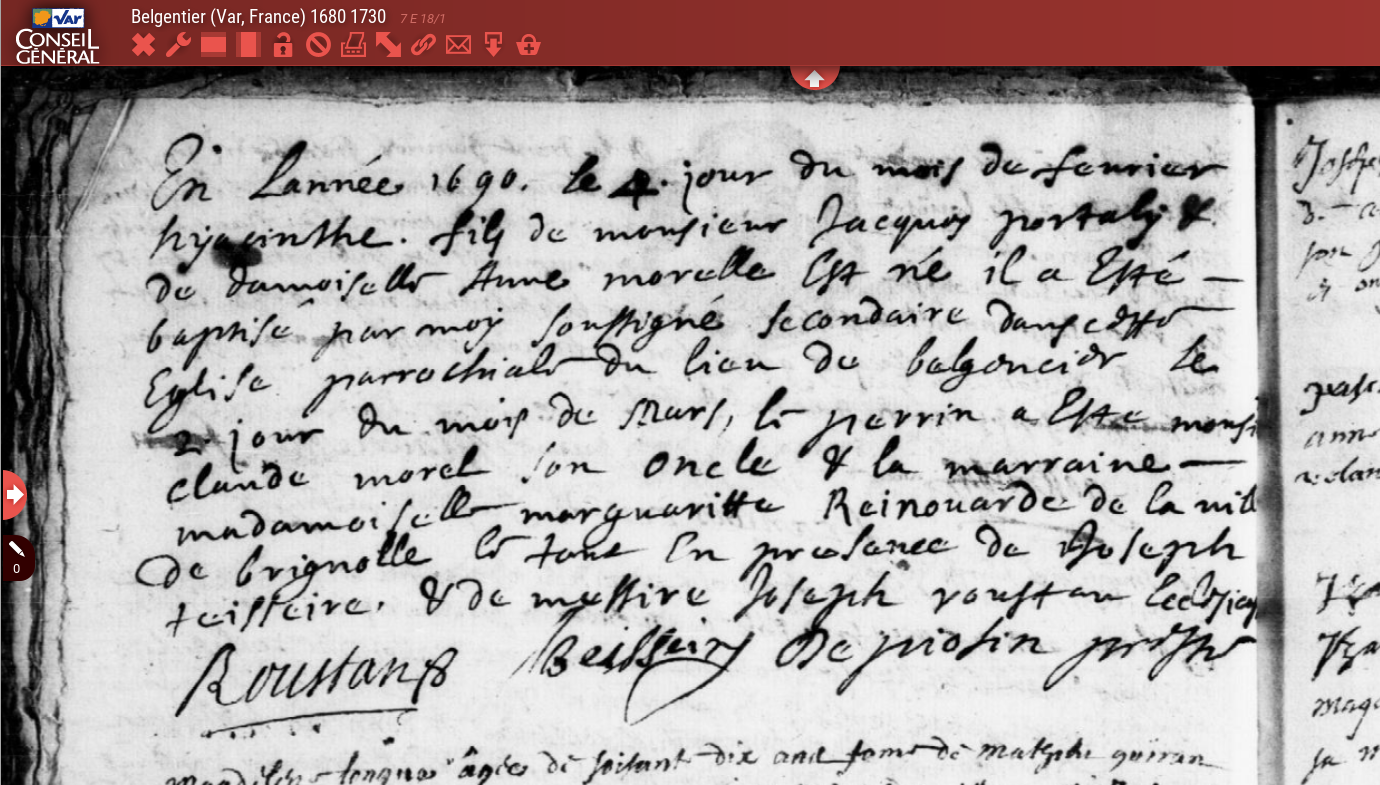 VAR
CONSEIL
GÉNÉRAL
Belgentier (Var, France) 1680 1730 7 E 18/1
0
En Lannée 1690. le 4. jour du mois de feurier
hyacinthe. fils de monsieur Jacques portaly &
de damoiselle Anne morelle Est né il a Esté —
baptisé par moy soussigné secondaire dans cette
Eglise parrochiale du lieu de belgencier le
2. jour du mois de Mars, le perrin a Esté monsi
claude morel son oncle & la marraine —
madamoiselle marguaritte Reinouarde de la ville
de brignolle le tout En presance de Joseph
teisseire. & de messire Joseph roustan
Roustan Teisseire De piosin
âgée de soisant dix ans fame de